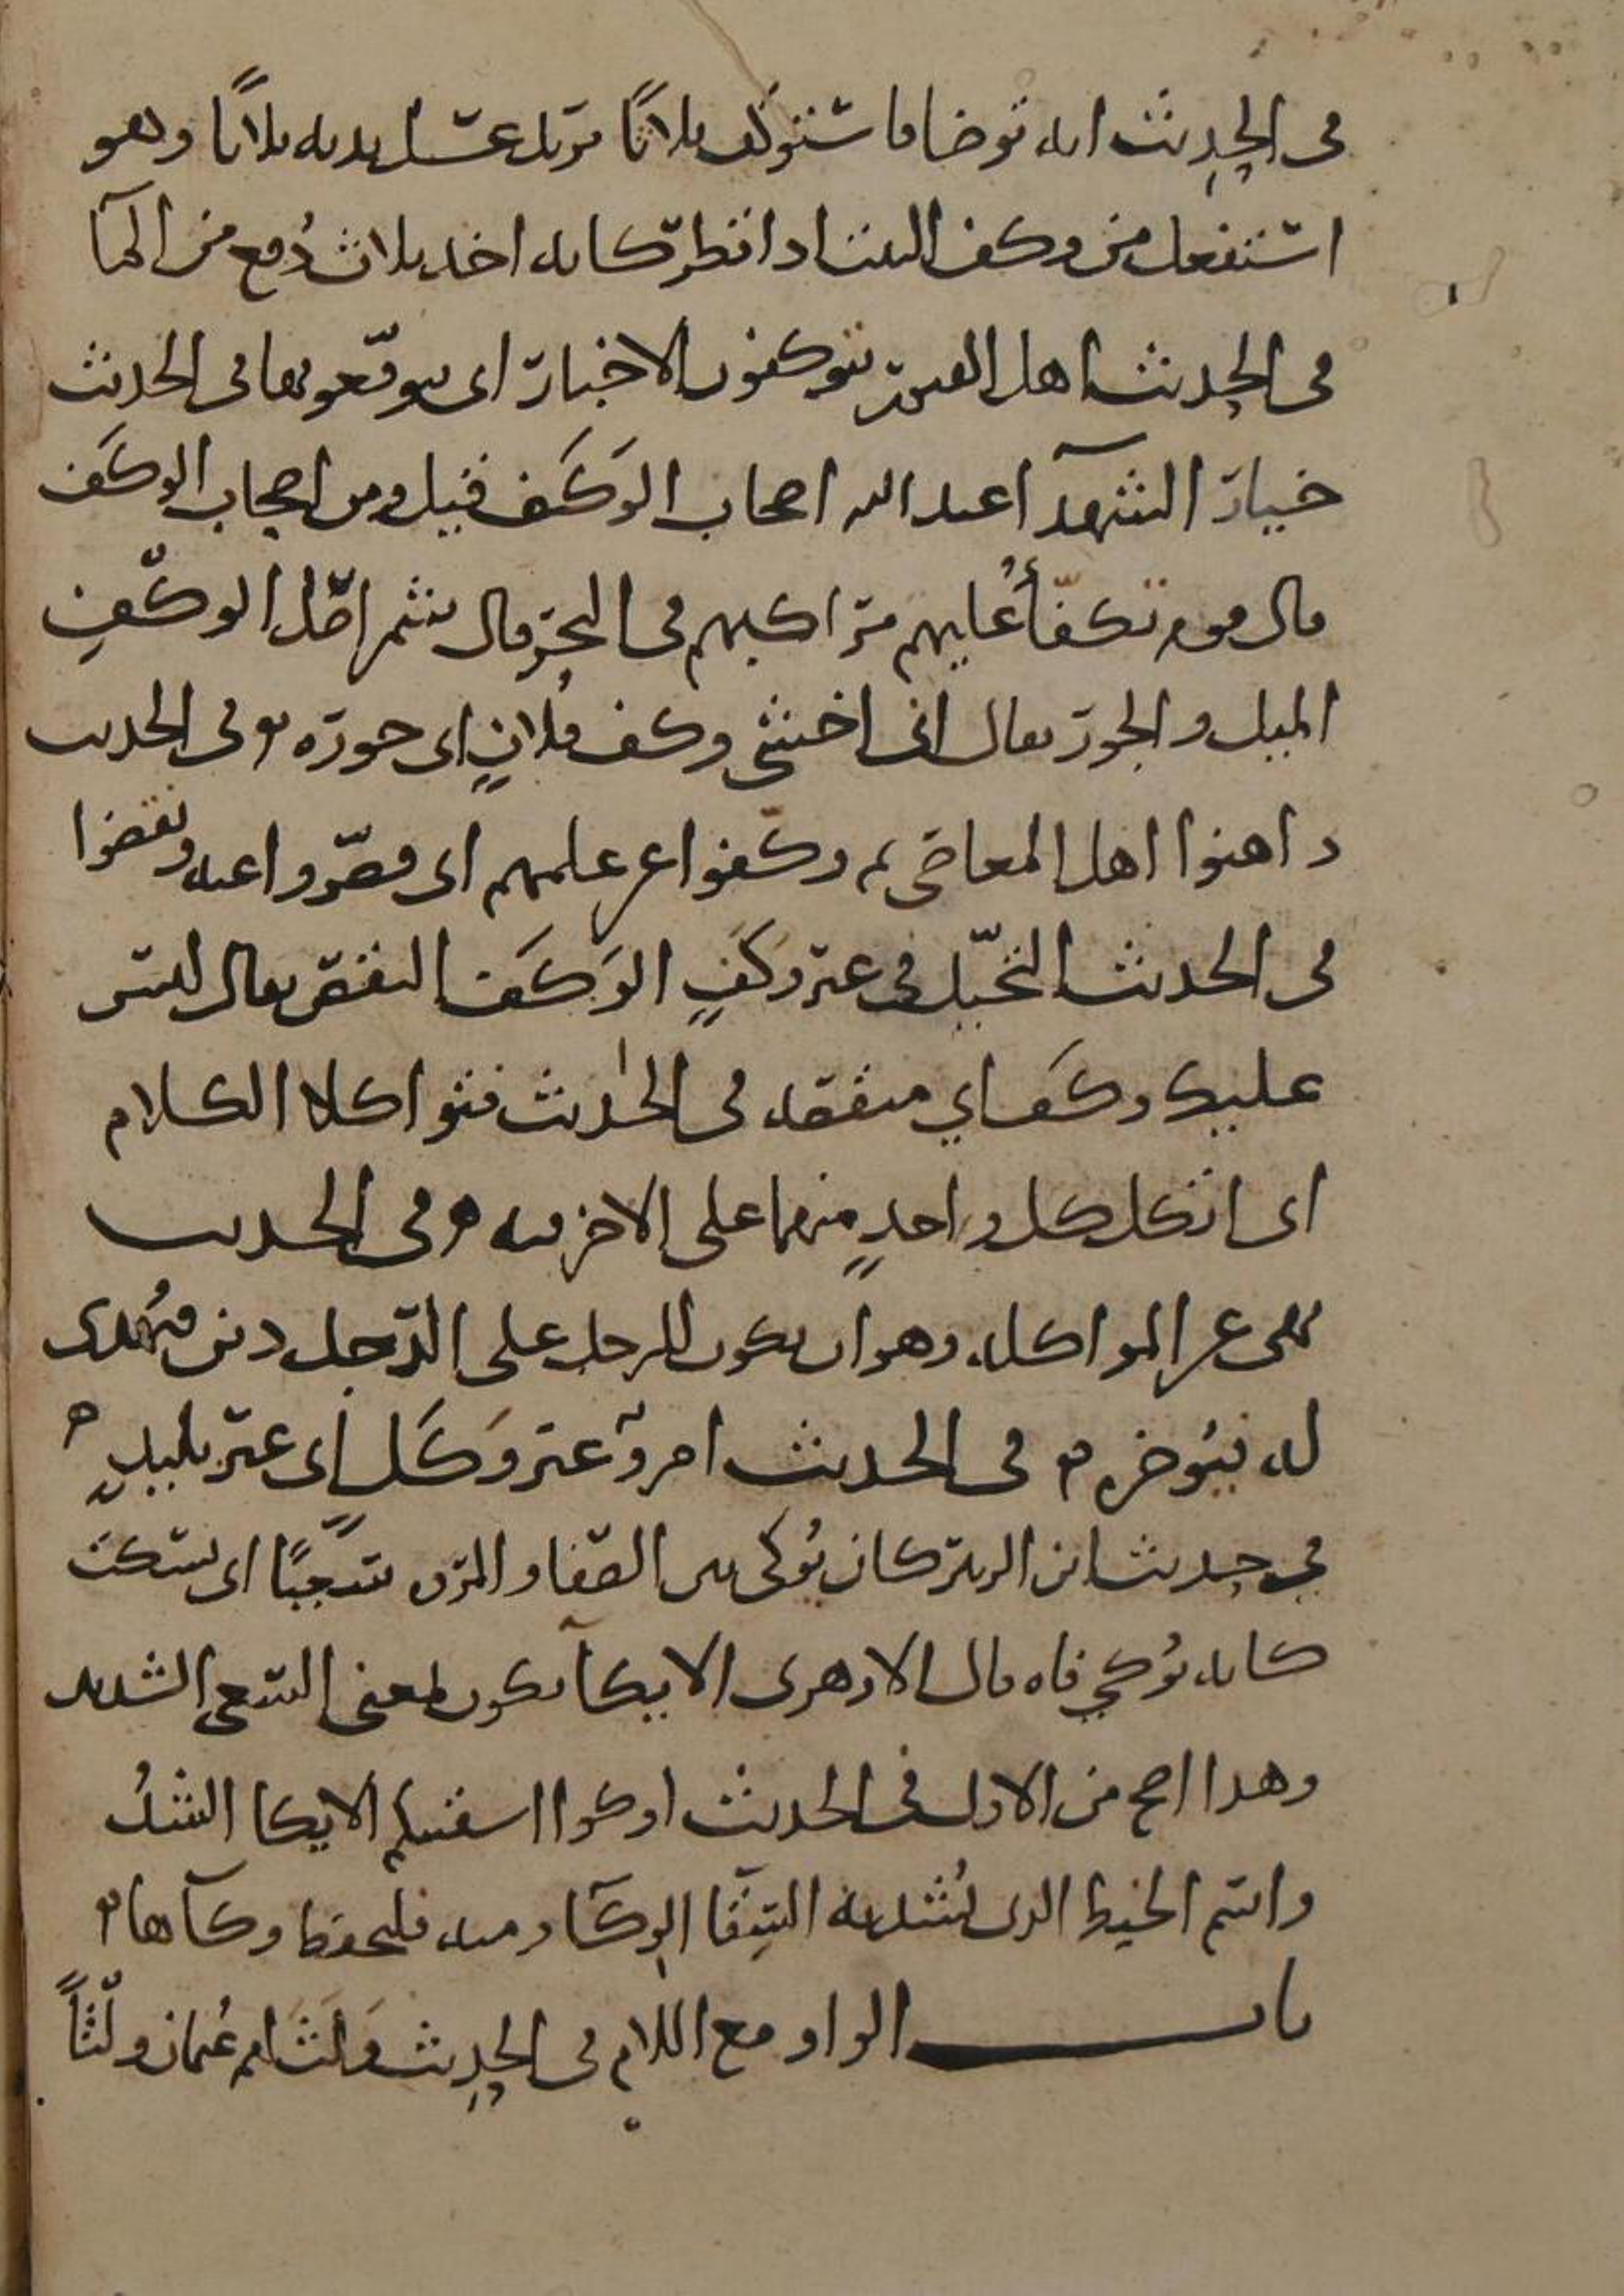 في الحديث انه توضا فاستوكف ثلاثًا يريد غسل يديه ثلاثا وهو
استفعل من وكف البيت اذا قطر كانه اخذ ثلاث دُفع من المآ
في الحديث اهل القبور يتوكفون الاخبار اى يتوقعونها في الحديث
خيار الشهدآ عند الله اصحاب الوَكَف قيل ومن اصحاب الوكَف
قال قوم تكفّأ عليهم مراكبهم في البحر قال شمر اصل الوكفِ
الميل والجور يقال انى اخشى وكف فلانٍ اى جوره وفى الحديث
داهنوا اهل المعاصى ثم وكفوا عن علمهم اى قصّروا عنه ونقضوا
في الحديث البخيل في غير وَكَفٍ الوَكَف النقص يقال ليس
عليك وكَف اي منقصه في الحديث فتواكلا الكلام
اى اتكل كل واحدٍ منهما على الاخر فيه وفى الحديث
نهى عن المواكله وهو ان يكون للرجل على الرّجل دين فيُهدى
له فيؤخره في الحديث امرؤ غير وَكَلٍ اى غير بليدٍ
في حديث ابن الزبير كان يُوكى بين الصفا والمروه سعيًا اى يسكت
كانه يُوكي فاه قال الازهرى الايكآ يكون بمعنى السعى الشديد
وهذا اصح من الاول في الحديث اوكوا اسقيتكم الايكا الشدُ
واسم الخيط الذى يُشد به السِقآ الوِكآ ومنه فليحفظ وكآها
باب الواو مع اللام في الحديث وَلَثَ لهم عُثمان ولثاً